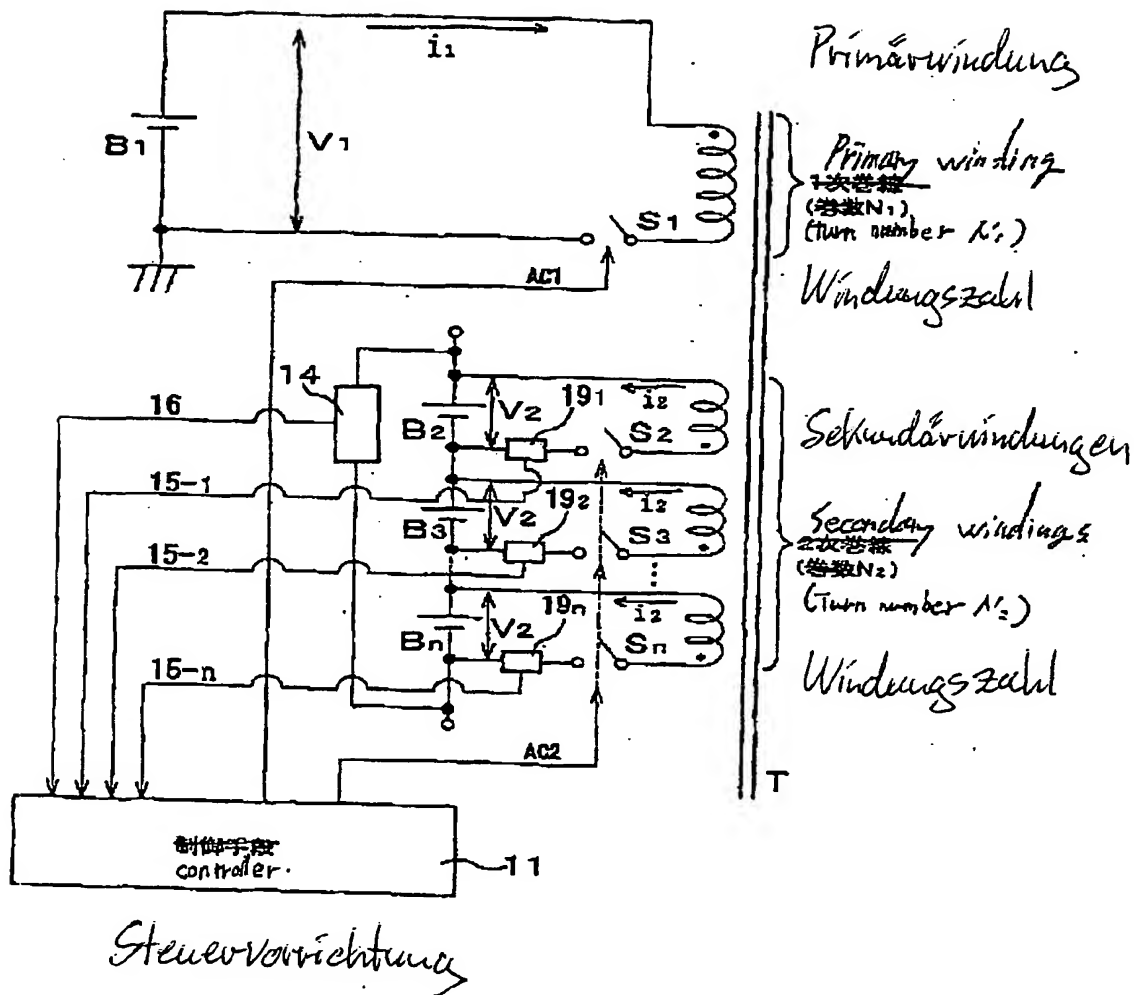 i₁
Primärwindung
B₁
V₁
Primary winding
1次巻線
(巻数N₁)
(Turn number N₁)
S₁
AC1
Windungszahl
14
16
V₂
19₁
i₂
B₂
S₂
Sekundärwindungen
15-₁
V₂
19₂
i₂
B₃
S₃
Secondary windings
2次巻線
(巻数N₂)
(Turn number N₂)
15-₂
V₂
19ₙ
i₂
Bₙ
Sₙ
Windungszahl
15-n
AC2
T
制御手段
controller.
11
Steuervorrichtung